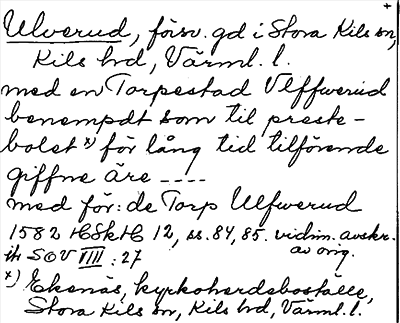 +
Ulverud, försv. gd i Stora Kils sn,
Kils hd, Värml. l.
med en Torpestad Vlffwerud
benempdt som til preste-
bolet x) för lång tid tilförende
giffne äre ----
med för: de Torp Ulfwerud
1582 HSkH 12, ss. 84, 85. vidim. avskr.
av orig.
jfr SOV VIII : 27
x) Ekenäs, kyrkoherdeboställe,
Stora Kils sn, Kils hd, Värml. l.